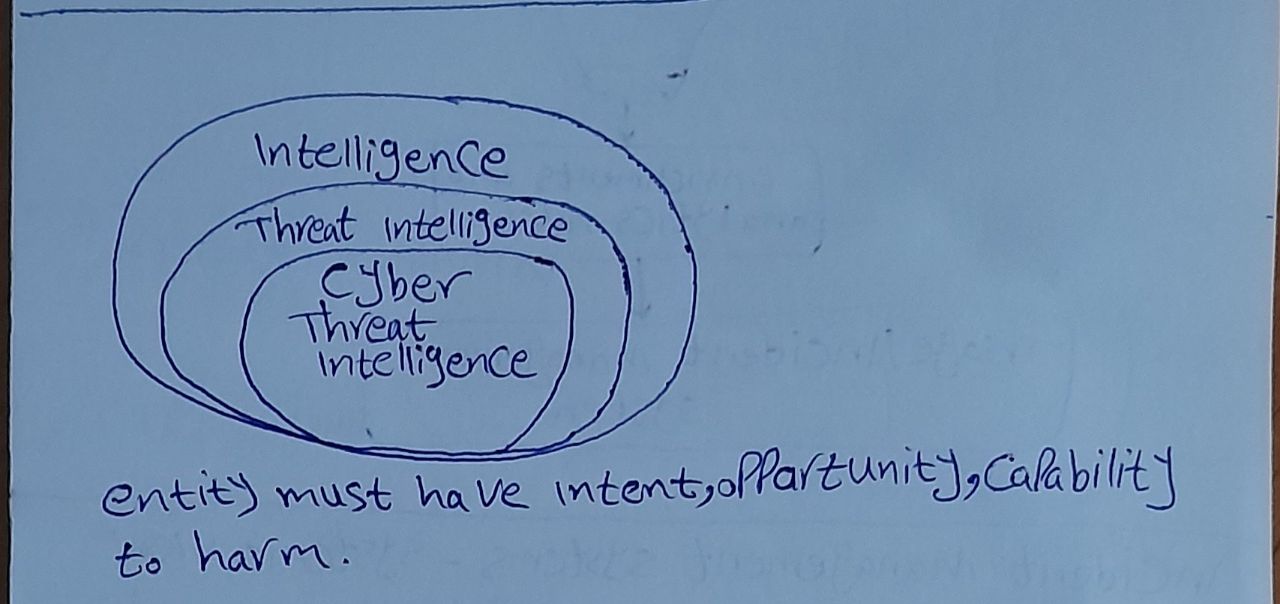 Intelligence
Threat intelligence
Cyber
Threat
Intelligence
entity must have intent, oppartunity, Capability
to harm.